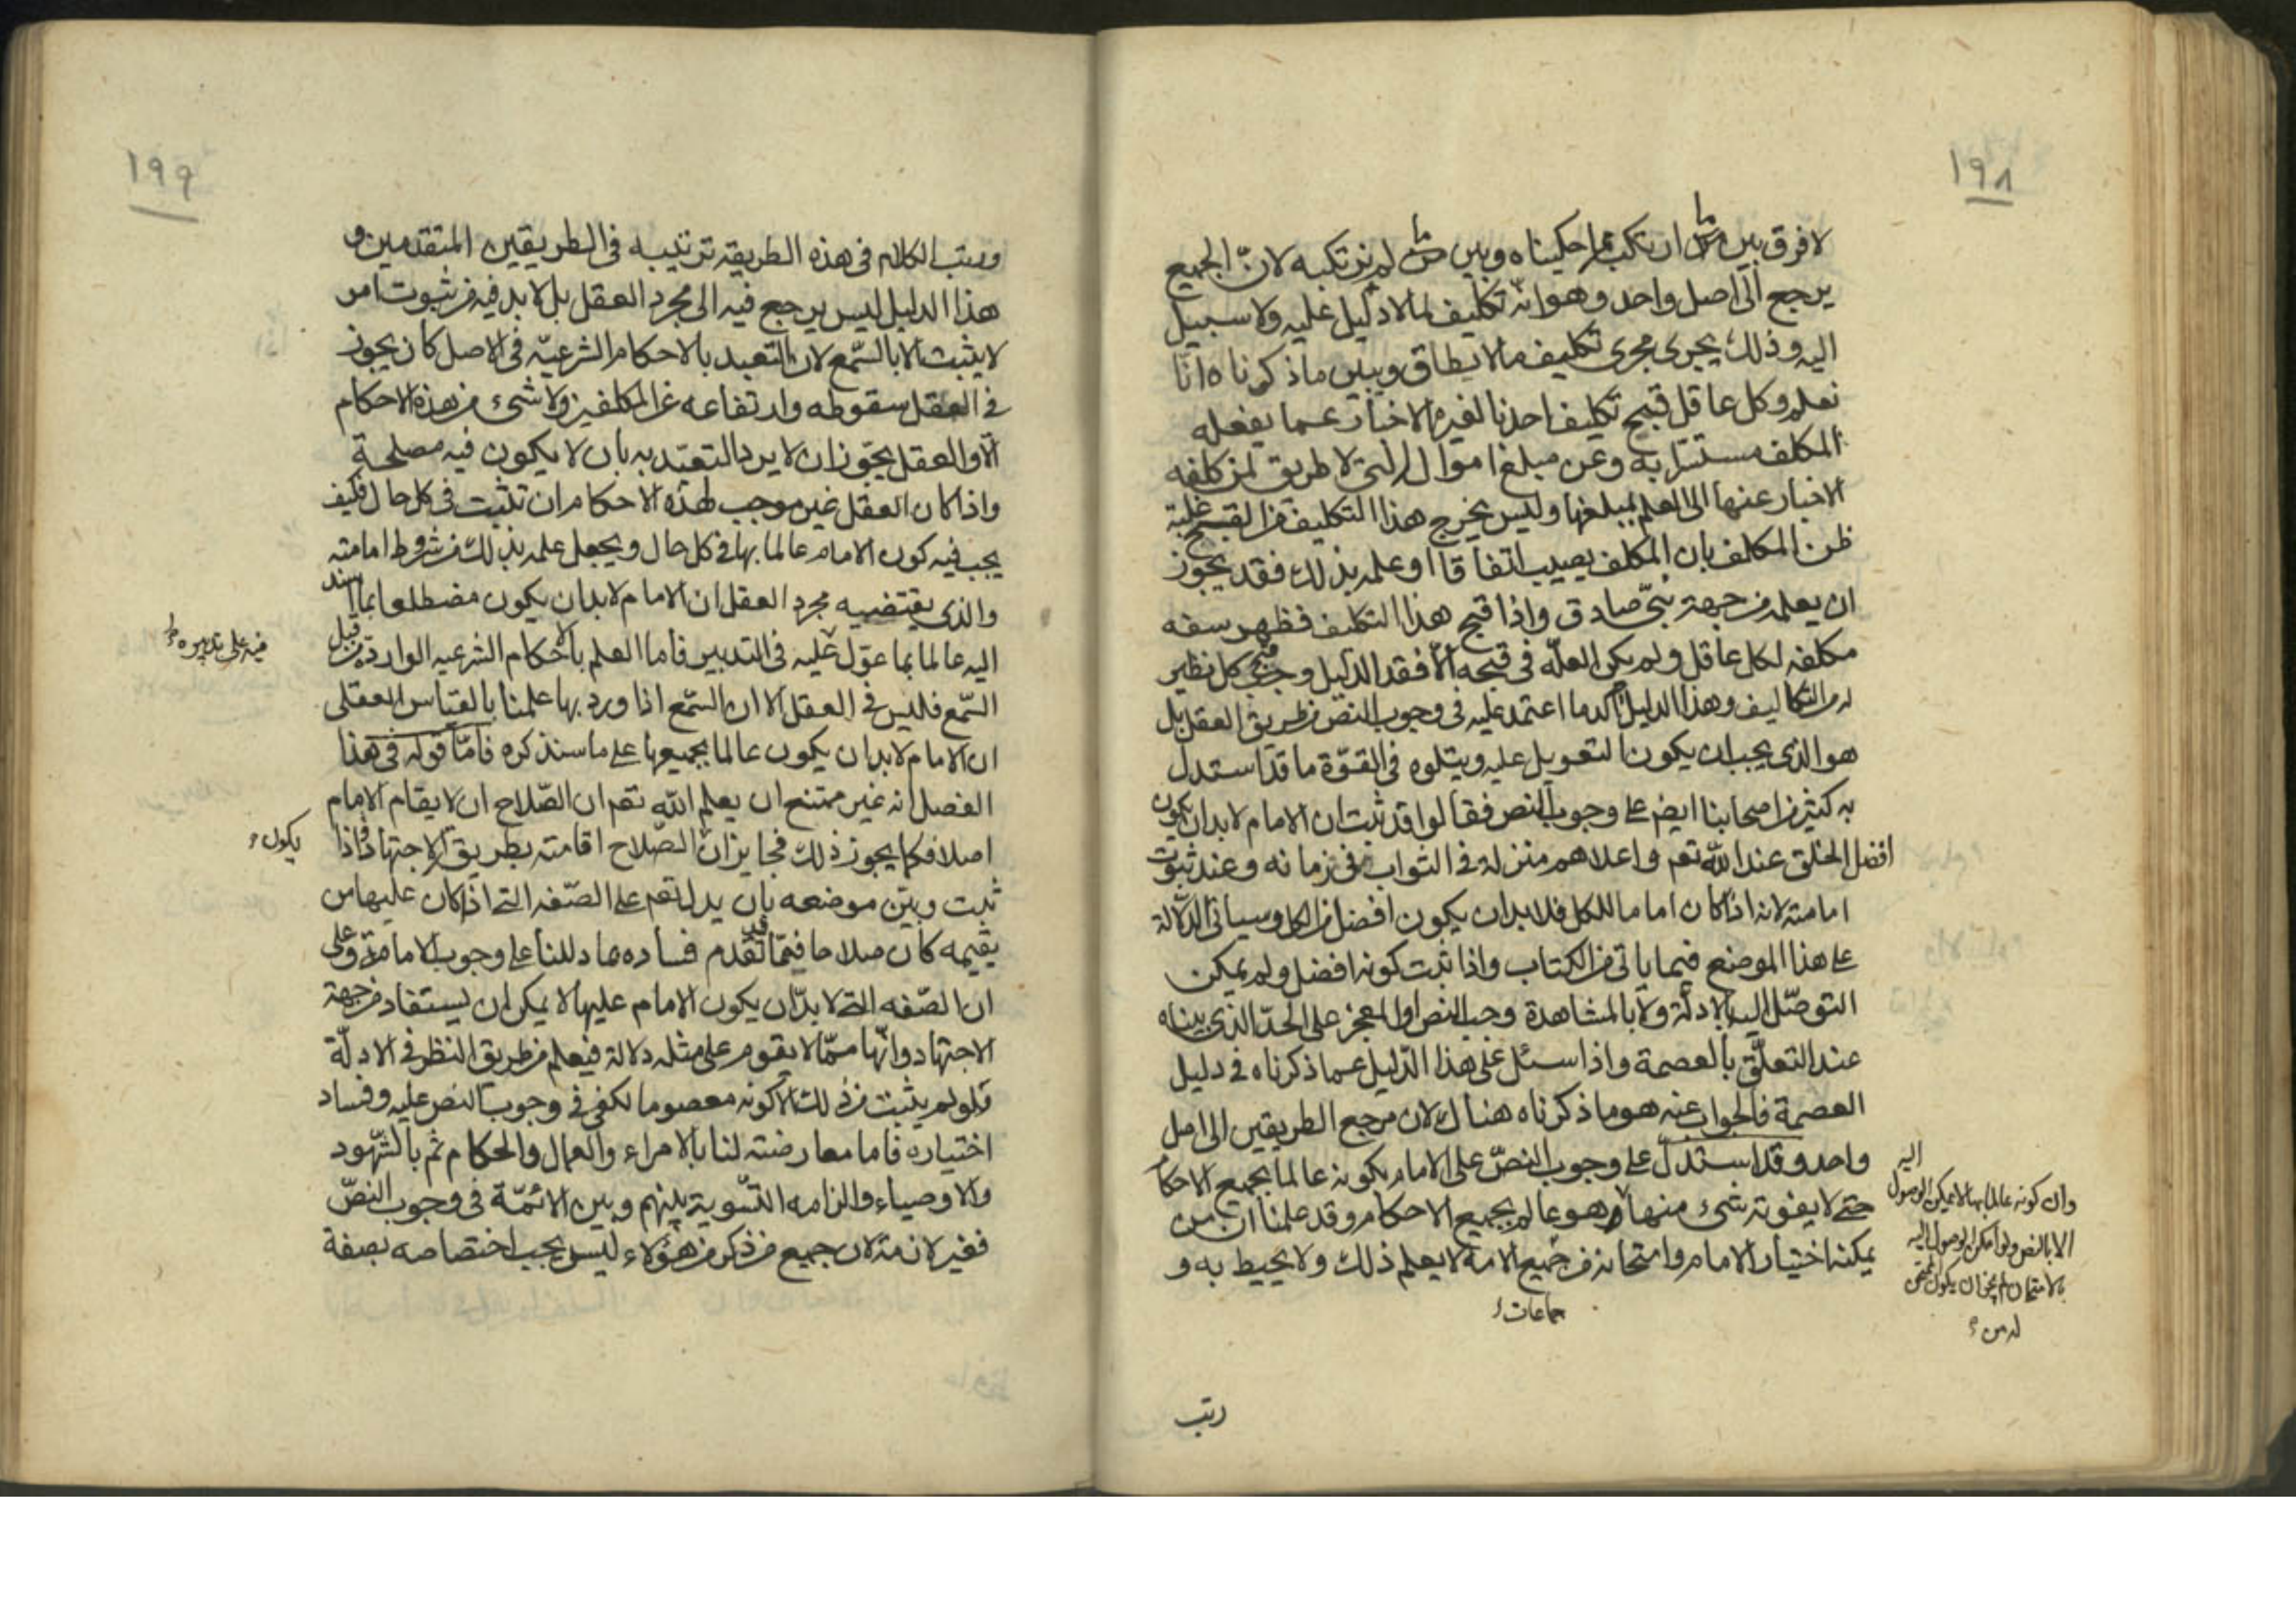 ١٩٨
لا فرق بين ما ارتكب مما حكيناه وبين ما لم نرتكبه لانّ الجميع
يرجع الى اصل واحد وهو انّه تكليف لما لا دليل عليه ولا سبيل
اليه وذلك يجرى مجرى تكليف ما لا يطاق ويبين ما ذكرناه انّا
نعلم وكل عاقل قبح تكليف احدنا لغيره الاخبار عما يفعله
المكلف مستترا به وعن مبلغ اموال التى لا طريق لمن كلفه
الاخبار عنها الى العلم بمبلغها وليس يخرج هذا التكليف من القبح غلبة
ظن المكلف بان المكلف يصيب اتفاقا او علمه بذلك فقد يجوز
ان يعلمه من جهة نبىّ صادق واذا قبح هذا التكليف فظهر سفه
مكلفه لكل عاقل ولم يكن العلّه فى قبحه الّا فقد الدليل وجب قبح كل نظير
له من التكاليف وهذا الدليل آكد ما اعتمد عليه فى وجوب النصّ من طريق العقل بل
هو الذى يجب ان يكون التعويل عليه ويتلوه فى القوّة ما قد استدل
به كثير من اصحابنا ايضا على وجوب النص فقالوا قد ثبت ان الامام لابد ان يكون
افضل الخلق عند الله تعم واعلاهم منزلة فى الثواب فى زمانه وعند ثبوت
امامته لانه اذا كان اماما للكل فلابد ان يكون افضل من الكل وسياتى الدّلالة
على هذا الموضع فيما ياتى من الكتاب واذا ثبت كونه افضل ولم يمكن
التوصّل اليه بالادلّة ولا بالمشاهدة وجب النص او المعجز على الحدّ الذى بيناه
عند التعلّق بالعصمة واذا سئل على هذا الدّليل عما ذكرناه فى دليل
العصمة فالجواب عنه هو ما ذكرناه هناك لان مرجع الطريقين الى اصل
واحد وقد استدلّ على وجوب النصّ على الامام بكونه عالما بجميع الاحكام
حتى لا يفوته شىء منها وهو عالم بجميع الاحكام وقد علمنا ان من
يمكنه اختيار الامام وامتحانه من جميع الامة لا يعلم ذلك ولا يحيط به و
جماعات
اليه
وان كونه عالما بها لا يمكن الوصول
الا بالنص ولو امكن الوصول اليه
بالامتحان لم يجز ان يكون الممتحن
له من
رتب
١٩٩
ورتب الكلام فى هذه الطريقة ترتيبه فى الطريقين المتقدمين و
هذا الدليل ليس يرجع فيه الى مجرد العقل بل لابد فيه من ثبوت امر
لا يثبت الا بالسّمع لان التعبد بالاحكام الشرعيّه فى الاصل كان يجوز
فى العقل سقوطه وارتفاعه عن المكلفين ولا شىء من هذه الاحكام
الّا والعقل يجوّز ان لا يرد التعبّد به بان لا يكون فيه مصلحة
واذا كان العقل غير موجب لهذه الاحكام ان تثبت فى كل حال فكيف
يجب فيه كون الامام عالما بها فى كل حال ويجعل علمه بذلك من شروط امامته
والذى يقتضيه مجرد العقل ان الامام لابد ان يكون مضطلعا بما اسند
اليه عالما بما عوّل عليه فى التدبير فاما العلم بالاحكام الشرعيه الواردة من قبل
السّمع فليس فى العقل الا ان السّمع اذا ورد بها علمنا بالقياس العقلى
ان الامام لابد ان يكون عالما بجميعها على ما سنذكره فامّا قوله فى هذا
الفصل انه غير ممتنع ان يعلم الله تعم ان الصّلاح ان لا يقام الامام
اصلا فكما يجوز ذلك فجايز ان الصّلاح اقامته بطريق الاجتهاد فاذا
ثبت وبيّن موضعه بان يدل تعم على الصّفه التى اذا كان عليها من
يقيمه كان صلاحا فيما قد تقدم فساده بما دللنا على وجوب الامامة وعلى
ان الصّفه التى لابدّ ان يكون الامام عليها لا يمكن ان يستفاد من جهة
الاجتهاد وانّها ممّا لا يقوم على مثله دلالة فيعلم من طريق النظر فى الادلّة
فلو لم يثبت من ذلك الا كونه معصوما لكفى فى وجوب النص عليه وفساد
اختياره فاما معارضته لنا بالامراء والعمال والحكام ثم بالشّهود
والاوصياء والزامه التّسوية بينهم وبين الائمّة فى وجوب النصّ
فغير لازمة لان جميع من ذكر من هؤلاء ليس يجب اختصاصه بصفة
فيه على تدبيره
يكون